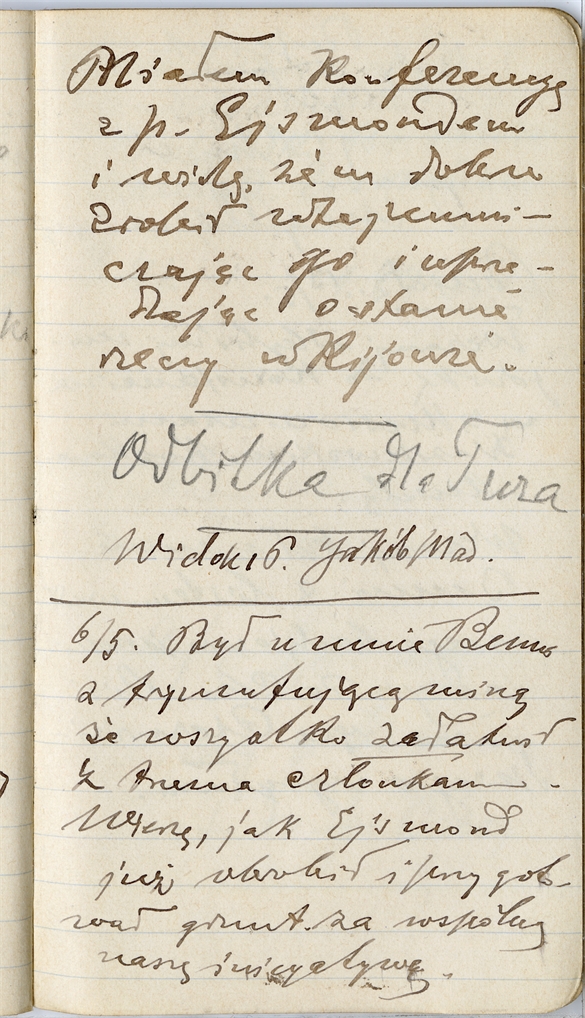 Miałem Konferencyę
z p. Ejsmondem
i widzę, żem dobrze
zrobił wtajemni-
czając go i uprze-
dzając o stanie
rzeczy w Kijowie.
Odbitka dla Tura
Widok i 6. Jakób Mad.
6/5. Był u mnie Benua
z tryumfującą miną
że wszystko załatwił
z trzema członkami.
Wierzę, jak Ejsmond
już obrobił i przygoto-
wał grunt za wspólną
naszą inicyatywą.